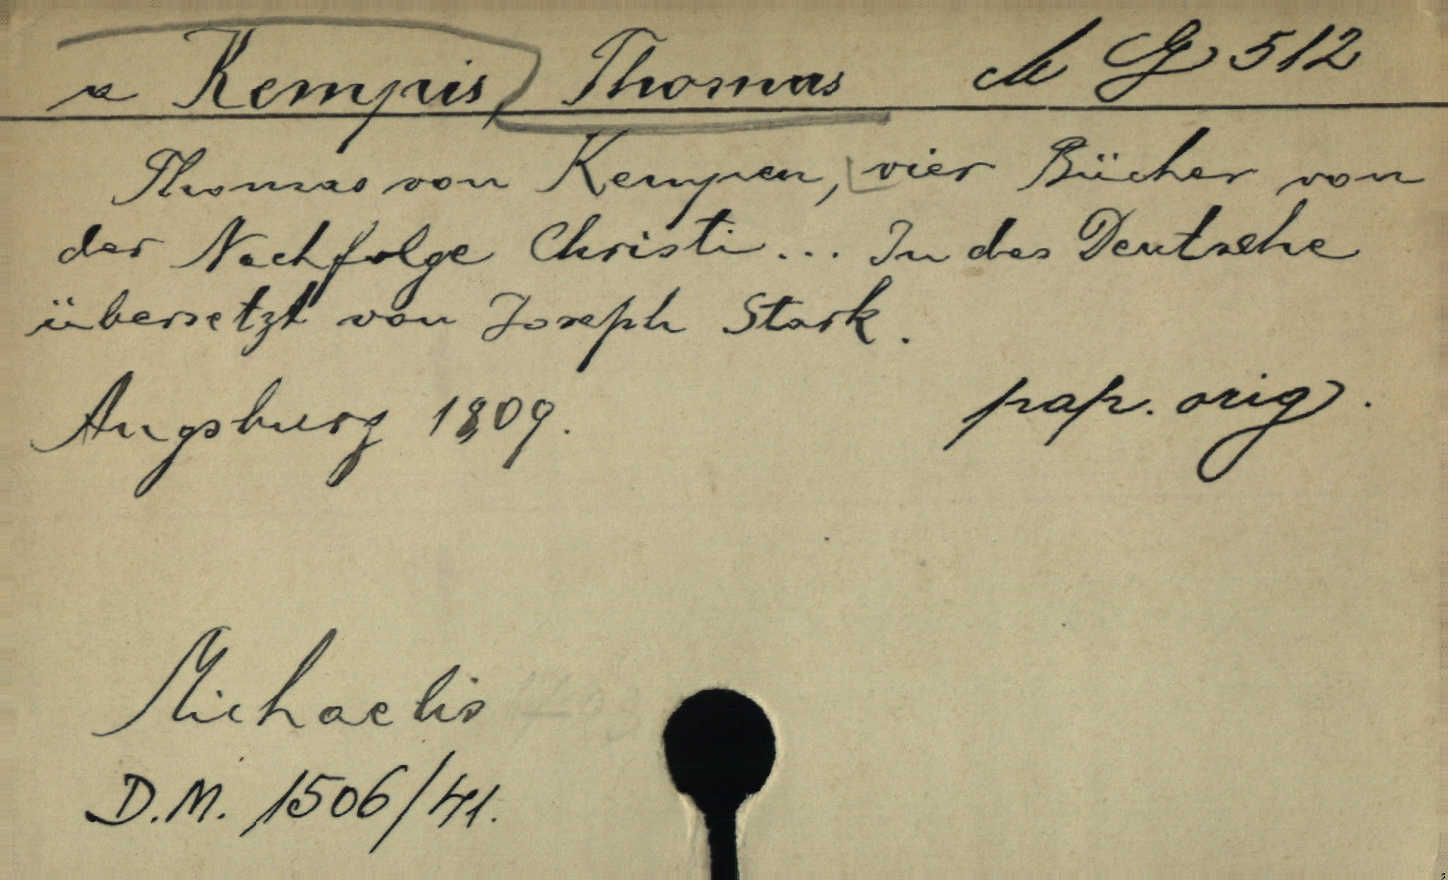 a Kempis, Thomas M G 512
Thomas von Kempen, vier Bücher von
der Nachfolge Christi... In das Deutsche
übersetzt von Joseph Stark.
Augsburg 1809. pap. orig.
Michaelis
D.M. 1506/41.